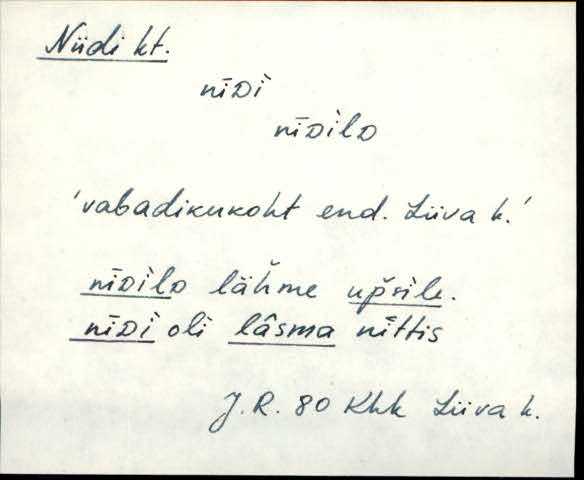 Niidi kt.
nīᴅi
nīᴅilᴅ
'vabadikukoht end. Liiva k.'
nīᴅilᴅ lähme up̌sile.
nīᴅi oli lâsma nīttis
J.R. 80 Khk Liiva k.